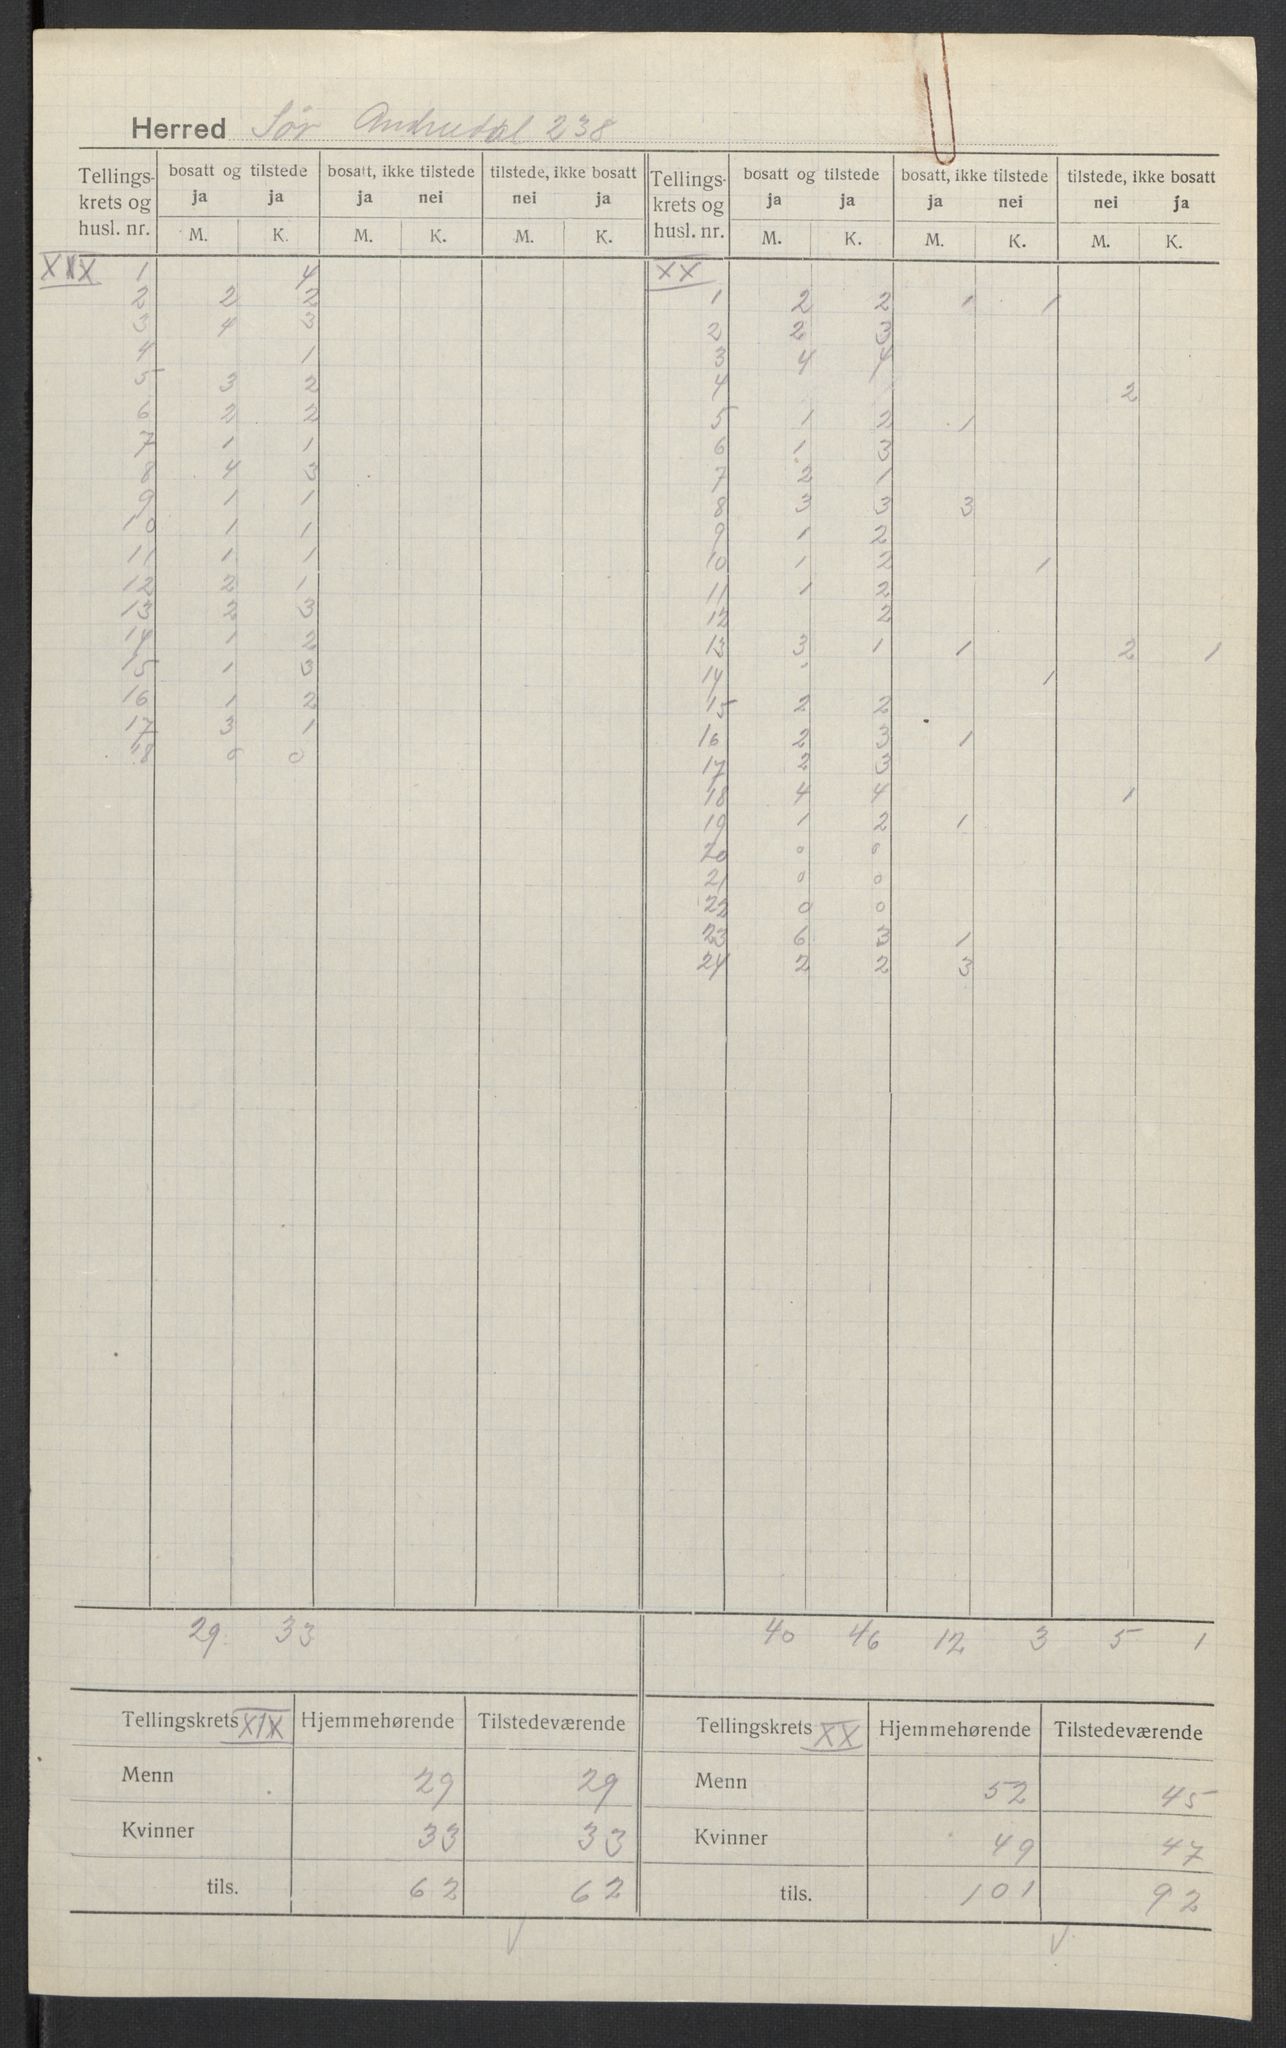 Herred Sør Andrudal 238
Tellingskrets og husl. nr. | bosatt og tilstede ja M. | ja K. | bosatt, ikke tilstede ja M. | nei K. | tilstede, ikke bosatt nei M. | ja K.
XIX 1 4
2 2 2
3 4 3
4 1
5 3 2
6 2 2
7 1 1
8 4 3
9 1 1
10 1 1
11 1 1
12 2 1
13 2 3
14 1 2
15 1 3
16 1 2
17 3 1
18 0 0
29 33
Tellingskrets XIX | Hjemmehørende | Tilstedeværende
Menn 29 29
Kvinner 33 33
tils. 62 62
Tellingskrets og husl. nr. | bosatt og tilstede ja M. | ja K. | bosatt, ikke tilstede ja M. | nei K. | tilstede, ikke bosatt nei M. | ja K.
XX
1 2 2 1 1
2 2 3
3 4 4
4 2
5 1 2 1
6 1 3
7 2 1
8 3 3 3
9 1 2
10 1 2 1
11 1 2
12 2
13 3 1 1 2 1
14 1
15 2 2
16 2 3 1
17 2 3
18 4 4 1
19 1 2 1
20 0 0
21 0 0
22 0 0
23 6 3 1
24 2 2 3
40 46 12 3 5 1
Tellingskrets XX | Hjemmehørende | Tilstedeværende
Menn 52 45
Kvinner 49 47
tils. 101 92